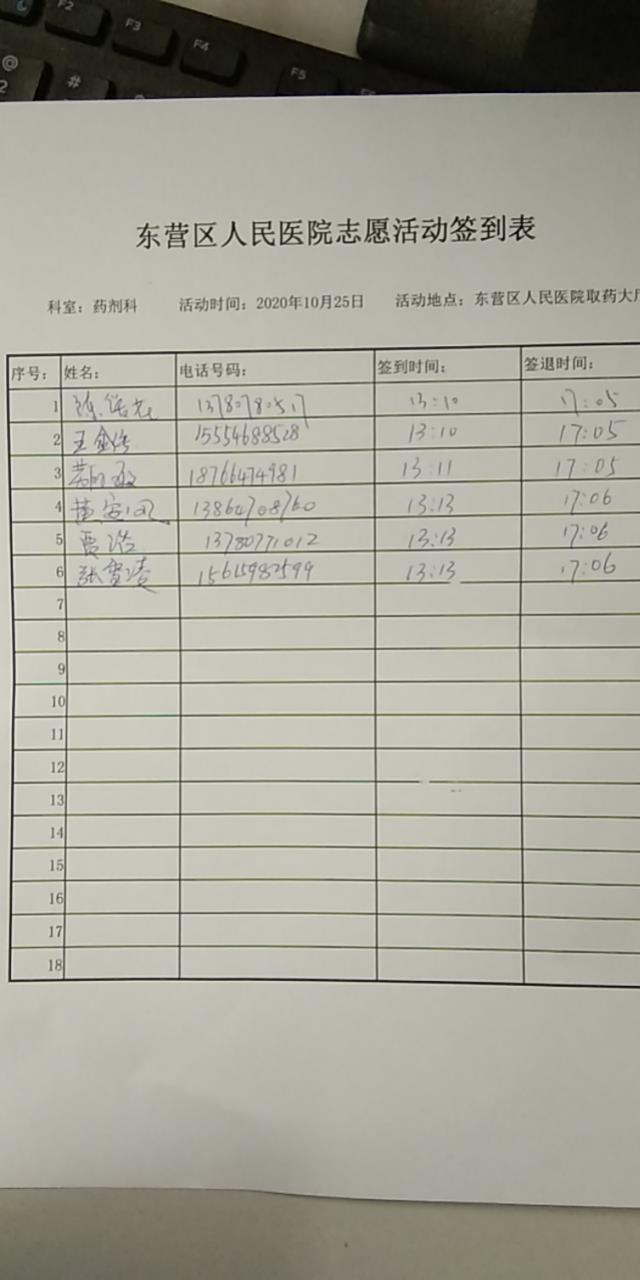 F2 F3 F4 F5
@ 2 #
东营区人民医院志愿活动签到表
科室：药剂科 活动时间：2020年10月25日 活动地点：东营区人民医院取药大厅
序号： 姓名： 电话号码： 签到时间： 签退时间：
1 13:10 17:05
2 15554688528 13:10 17:05
3 18766474981 13:11 17:05
4 13864708760 13:13 17:06
5 贾浩 13780771012 13:13 17:06
6 13:13 17:06
7
8
9
10
11
12
13
14
15
16
17
18